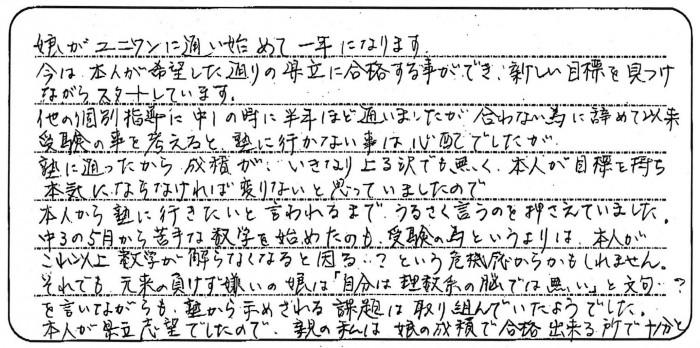 娘がユニワンに通い始めて一年になります。
今は、本人が希望した通りの県立に合格する事ができ、新しい目標を見つけ
ながらスタートしています。
他の個別指導に中1の時に半年ほど通いましたが、合わない為に辞めて以来
受験の事を考えると、塾に行かない事は心配でしたが
塾に通ったから、成績が、いきなり上る訳でも無く、本人が目標を持ち
本気にならなければ変りないと思っていましたので
本人から塾に行きたいと言われるまで、うるさく言うのを押さえていました。
中3の5月から苦手な数学を始めたのも、受験の為というよりは、本人が
これ以上数学が解らなくなると困る…?という危機感からかもしれません。
それでも、元来の負けず嫌いの娘は「自分は理数系の脳では無い」と文句?
を言いながらも、塾から示めされる課題は取り組んでいたようでした。
本人が県立志望でしたので、親の私は娘の成績で合格出来る所で十分と